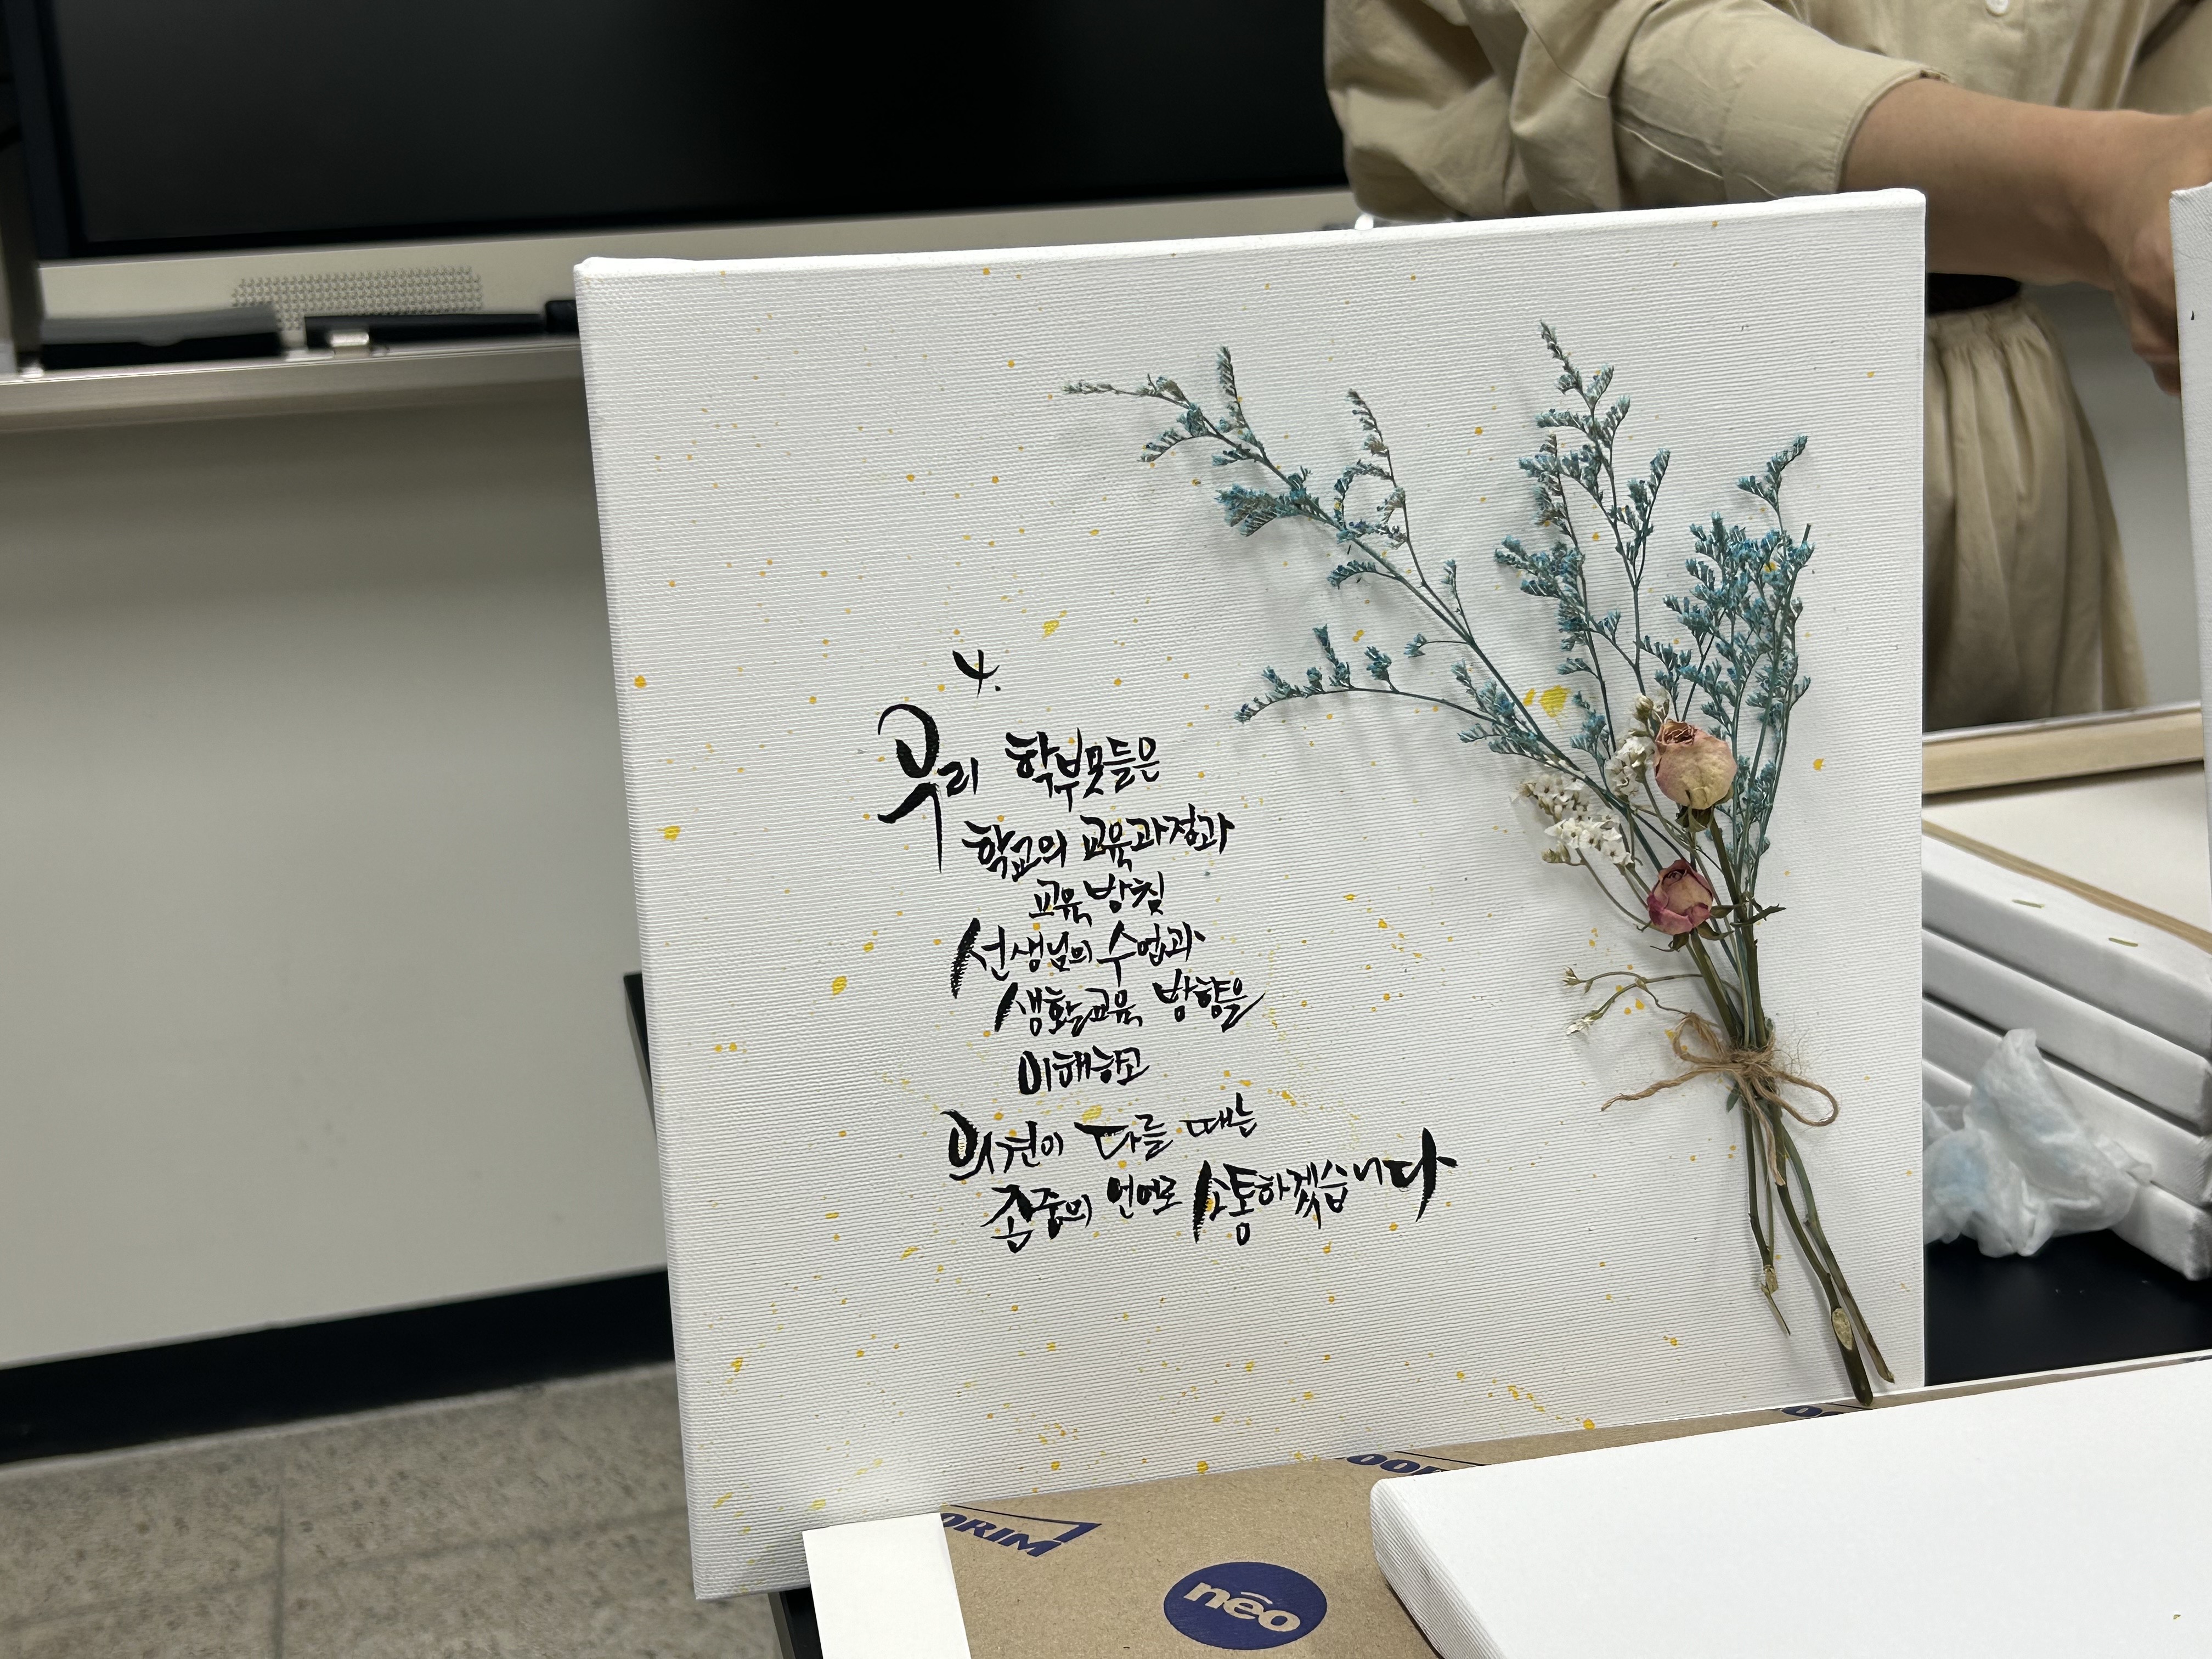 4.
우리 학부모들은
학교의 교육과정과
교육방침
선생님의 수업과
생활교육 방향을
이해하고
의견이 다를 때는
존중의 언어로 소통하겠습니다
ORIM
neo